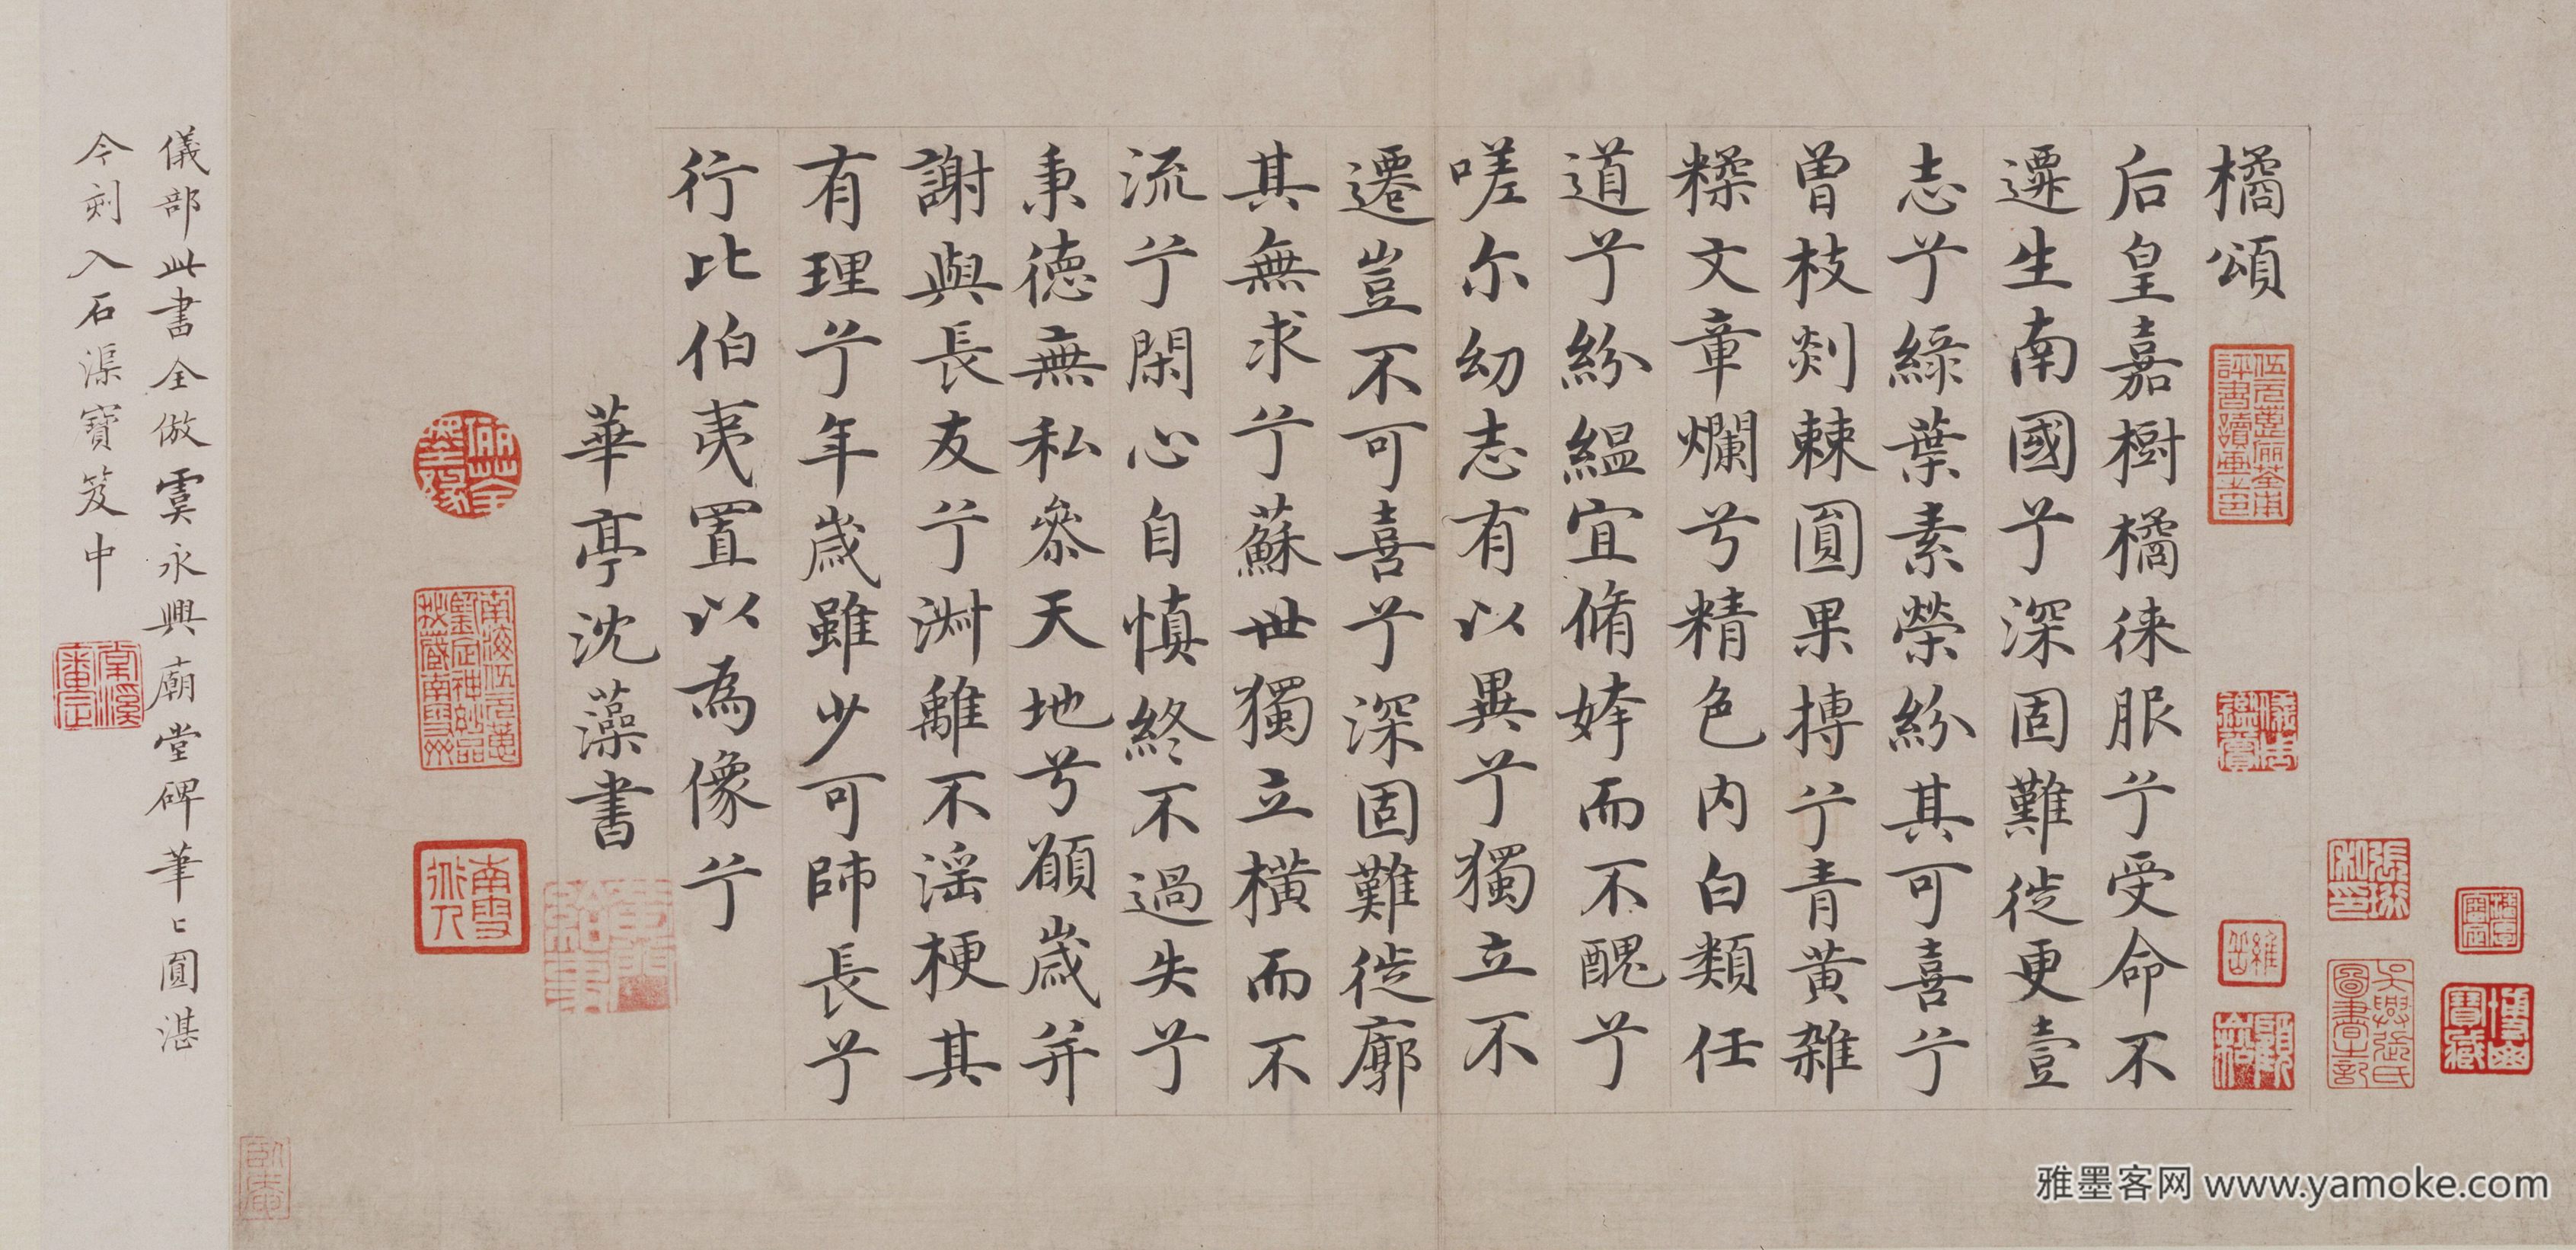 橘頌
后皇嘉樹橘徠服兮受命不
遷生南國兮深固難徙更壹
志兮綠葉素榮紛其可喜兮
曾枝剡棘圓果摶兮青黃雜
糅文章爛兮精色內白類任
道兮紛縕宜脩姱而不醜兮
嗟尔幼志有以異兮獨立不
遷豈不可喜兮深固難徙廓
其無求兮蘇世獨立橫而不
流兮閑心自慎終不過失兮
秉德無私參天地兮願歲并
謝與長友兮淑離不淫梗其
有理兮年歲雖少可師長兮
行比伯夷置以為像兮
華亭沈藻書
儀部此書全倣虞永興廟堂碑筆〻圓湛
今刻入石渠寶笈中
雅墨客网 www.yamoke.com